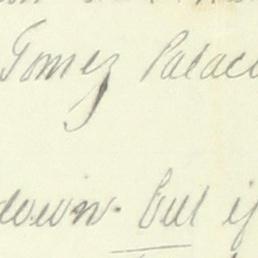 Gomez Palac
down. but if